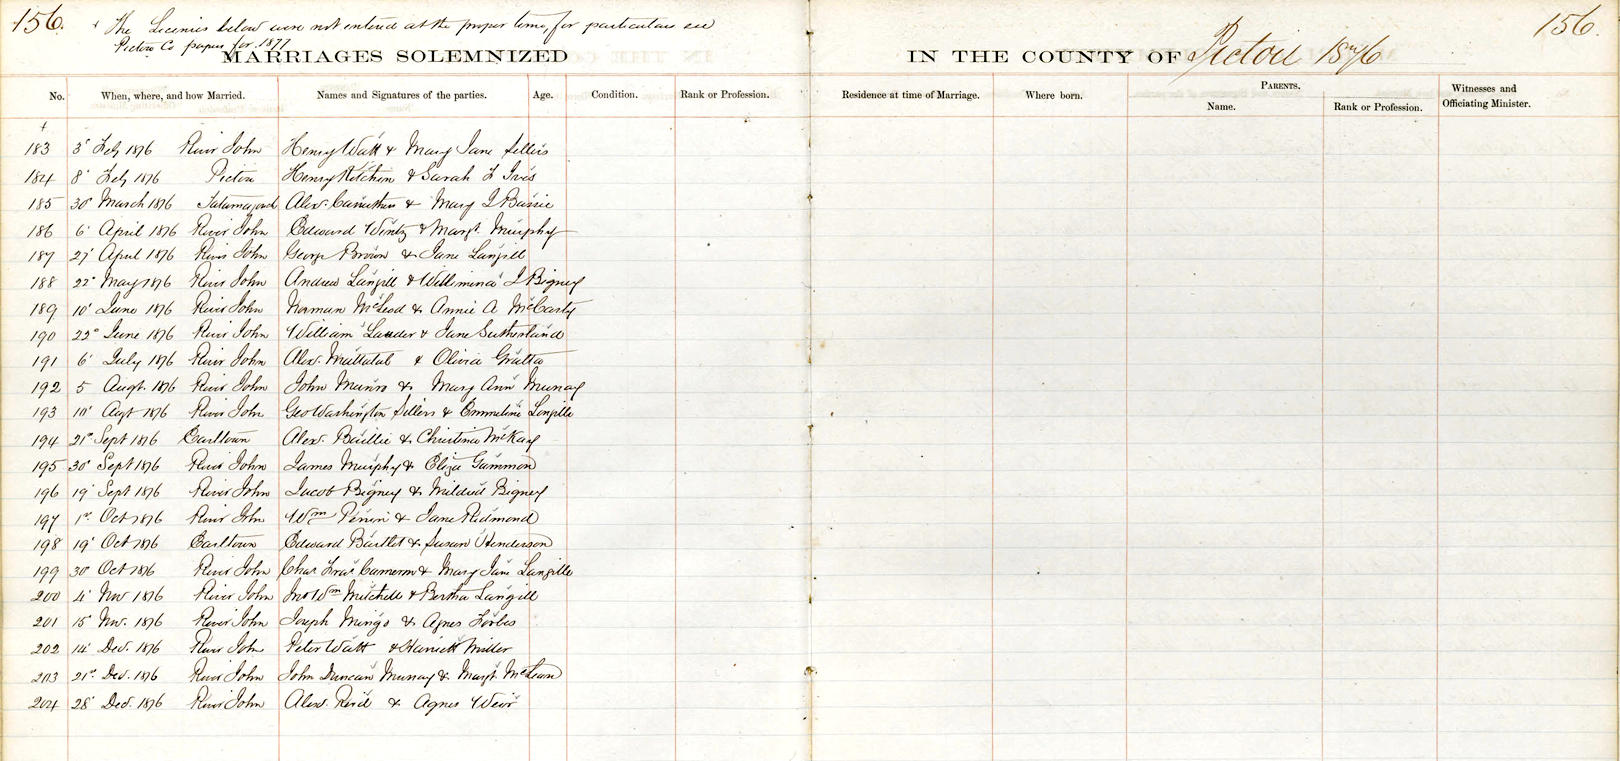 156. + The Licenses below were not entered at the proper time, for particulars see 156.
Pictou Co papers for 1877
MARRIAGES SOLEMNIZED IN THE COUNTY OF Pictou 1876
No. When, where, and how Married. Names and Signatures of the parties. Age. Condition. Rank or Profession. Residence at time of Marriage. Where born. PARENTS. Name. Rank or Profession. Witnesses and Officiating Minister.
+
183 3' Feby 1876 River John Henry Watt & Mary Jane Sellers
184 8' Feby 1876 Pictou Henry Kitchin & Sarah F Ives
185 30' March 1876 Alex. Caruthers & Mary J
186 6' April 1876 River John Edward Wentz & Margt. Murphy
187 27' April 1876 River John George Brown & Jane Langill
188 22' May 1876 River John Andrew Langill & Willimina J Bigney
189 10' June 1876 River John Norman McLeod & Annie A McCarty
190 22' June 1876 River John William Lauder & Jane Sutherland
191 6' July 1876 River John Alex. Mattatal & Olivia Gratto
192 5 Augt. 1876 River John John Munro & Mary Ann Murray
193 10' Augt 1876 River John Geo Washington Sellers & Emmeline Langille
194 21' Sept 1876 Earltown Alex. Baillie & Christina McKay
195 30' Sept 1876 River John James Murphy & Eliza Gammon
196 19' Sept 1876 River John Jacob Bigney & Mildred Bigney
197 1st Oct 1876 River John Wm Perrin & Jane Redmond
198 19' Oct 1876 Earltown Edward Bartlet & Susan Henderson
199 30' Oct 1876 River John Chas Fras Cameron & Mary Jane Langille
200 4' Nov 1876 River John Jno Wm Mitchell & Bertha Langill
201 15' Nov. 1876 River John Joseph Mingo & Agnes Forbes
202 14' Dec. 1876 River John Peter Watt & Harriett Miller
203 21st Dec. 1876 River John John Duncan Murray & Margt. McLean
204 28' Dec. 1876 River John Alex. Reid & Agnes Weir